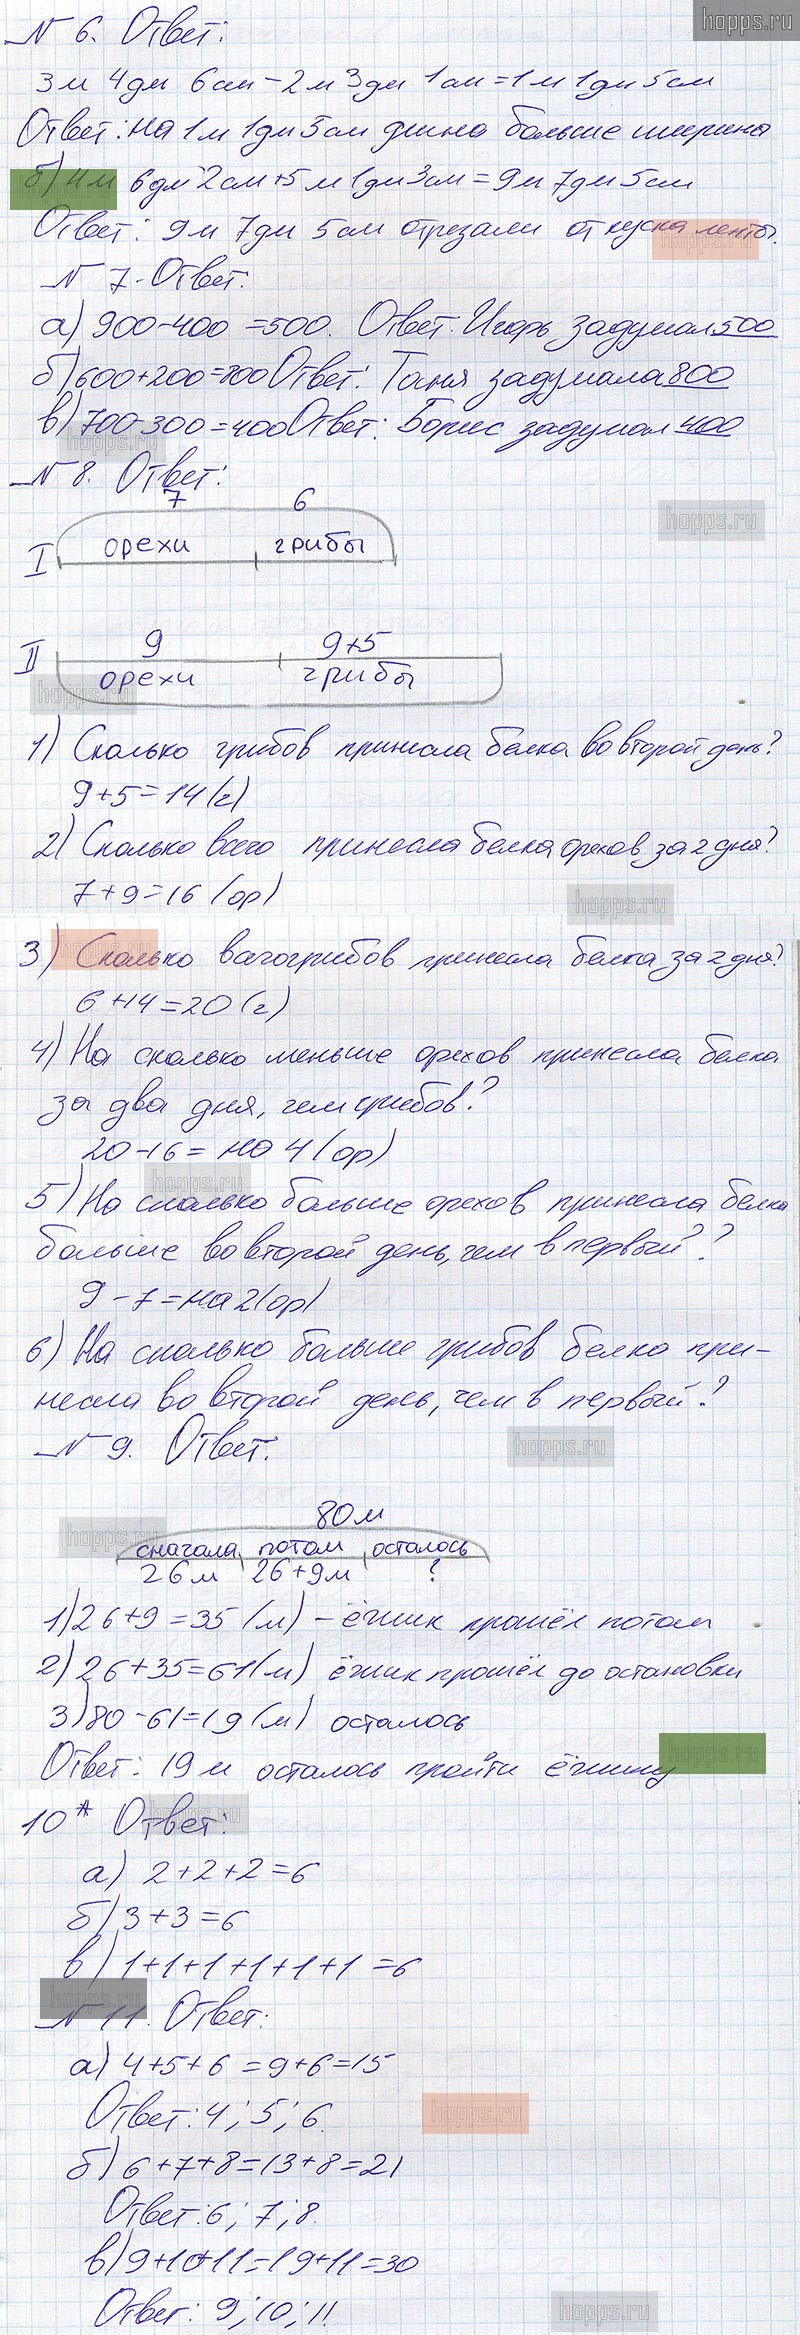 hopps.ru
№ 6. Ответ:
3м 4дм 6см - 2м 3дм 1см = 1м 1дм 5см
Ответ: на 1м 1дм 5см длина больше ширина
б) 4м 6дм 2см + 5м 1дм 3см = 9м 7дм 5см
Ответ: 9м 7дм 5см отрезали от куска ленты.
hopps.ru
№ 7. Ответ:
а) 900-400 = 500. Ответ: Игорь задумал 500
б) 600+200=800 Ответ: Таня задумала 800
в) 700-300=400 Ответ: Борис задумал 400
hopps.ru
№ 8. Ответ:
7 6
hopps.ru
I орехи грибы
9 9+5
II орехи грибы
hopps.ru
1) Сколько грибов принесла белка во второй день?
9+5=14(г)
2) Сколько всего принесла белка орехов за 2 дня?
7+9=16 (ор)
hopps.ru
3) Сколько всего грибов принесла белка за 2 дня?
6+14=20(г)
4) На сколько меньше орехов принесла белка
за два дня, чем грибов?
20-16 = на 4 (ор)
hopps.ru
5) На сколько больше орехов принесла белка
больше во второй день, чем в первый?
9-7=на 2(ор)
6) На сколько больше грибов белка при-
несла во второй день, чем в первый?
hopps.ru
№ 9. Ответ:
80м
hopps.ru
сначала потом осталось
26м 26+9м ?
1) 26+9=35 (м) - ёжик прошёл потом
2) 26+35=61(м) ёжик прошёл до остановки
3) 80-61=19(м) осталось
hopps.ru
Ответ: 19м осталось пройти ёжику
hopps.ru
10* Ответ:
а) 2+2+2=6
б) 3+3=6
в) 1+1+1+1+1+1=6
hopps.ru
№ 11. Ответ:
а) 4+5+6=9+6=15
Ответ: 4; 5; 6.
hopps.ru
б) 6+7+8=13+8=21
Ответ: 6; 7; 8.
в) 9+10+11=19+11=30
Ответ: 9; 10; 11.
hopps.ru